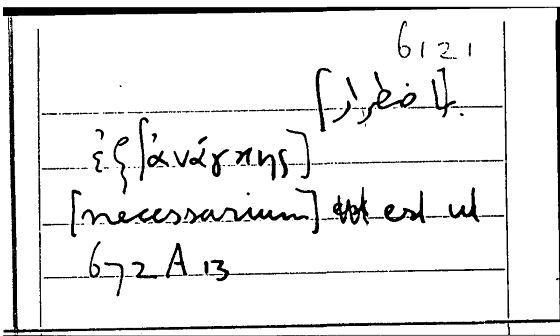 6121
با[ضطرار]
ἐξ [ἀνάγκης]
[necessarium] est ut
672 A 13